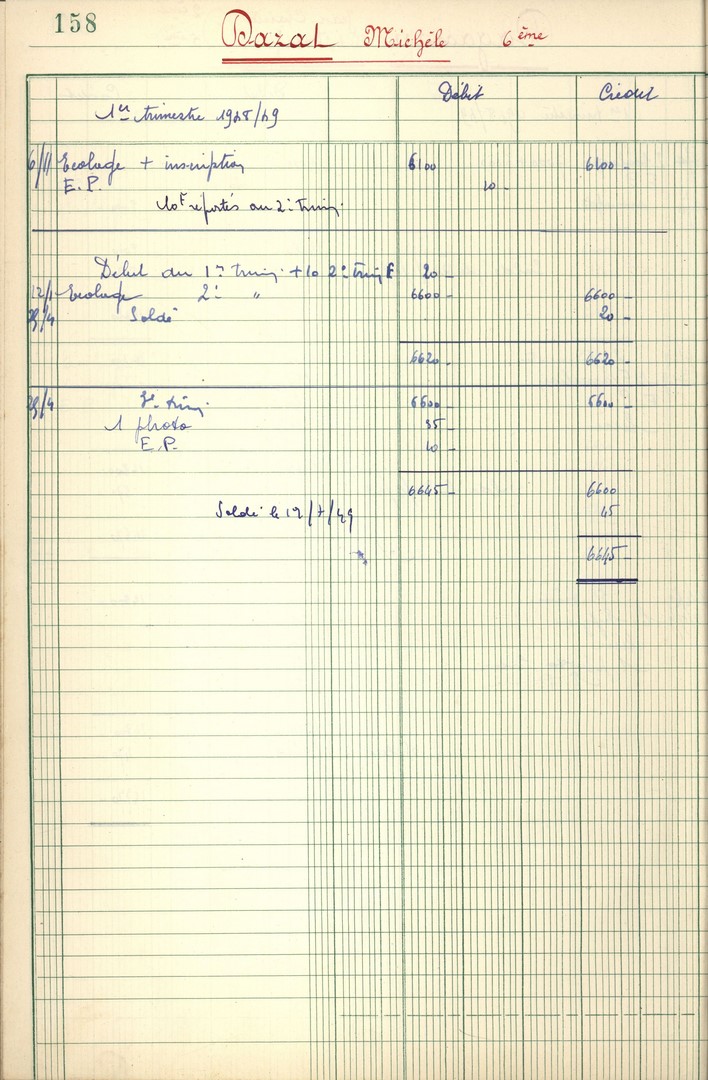 158
Dazal Michèle 6ème
Débit Crédit
1er trimestre 1948/49
6/11 Ecolage + inscription 6100 6100 -
E.P. 10 -
10F reportés au 2e trim.
Débit du 1er trim. + 10 2e trim E 20 -
12/1 Ecolage 2e " 6600 - 6600 -
/4 Soldé 20 -
6620 - 6620 -
/4 3e trim. 6600 - 6600 -
1 photo 35 -
E.P. 10 -
6645 - 6600
Soldé le 12/7/49 45
6645 -